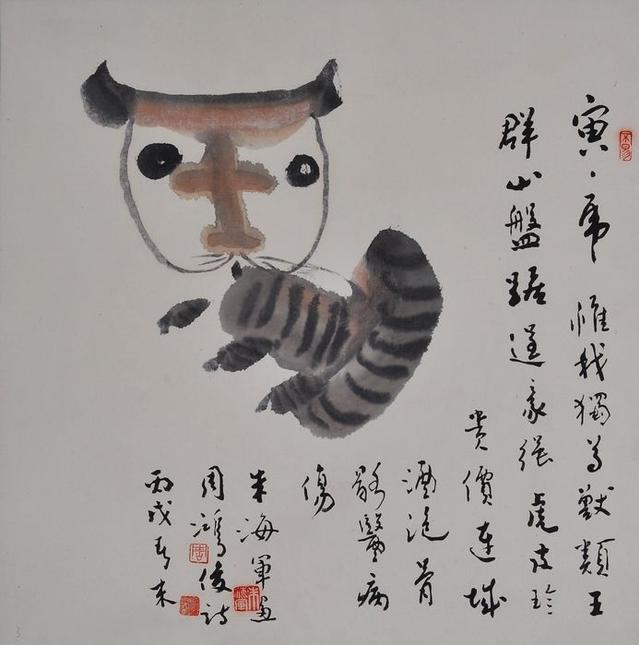 寅、虎 惟我獨尊獸類王
群山盤踞逞豪强 虎皮珍
貴價連城
酒泡骨
骸醫病
傷
朱海軍畫
周鴻俊詩
丙戌春末